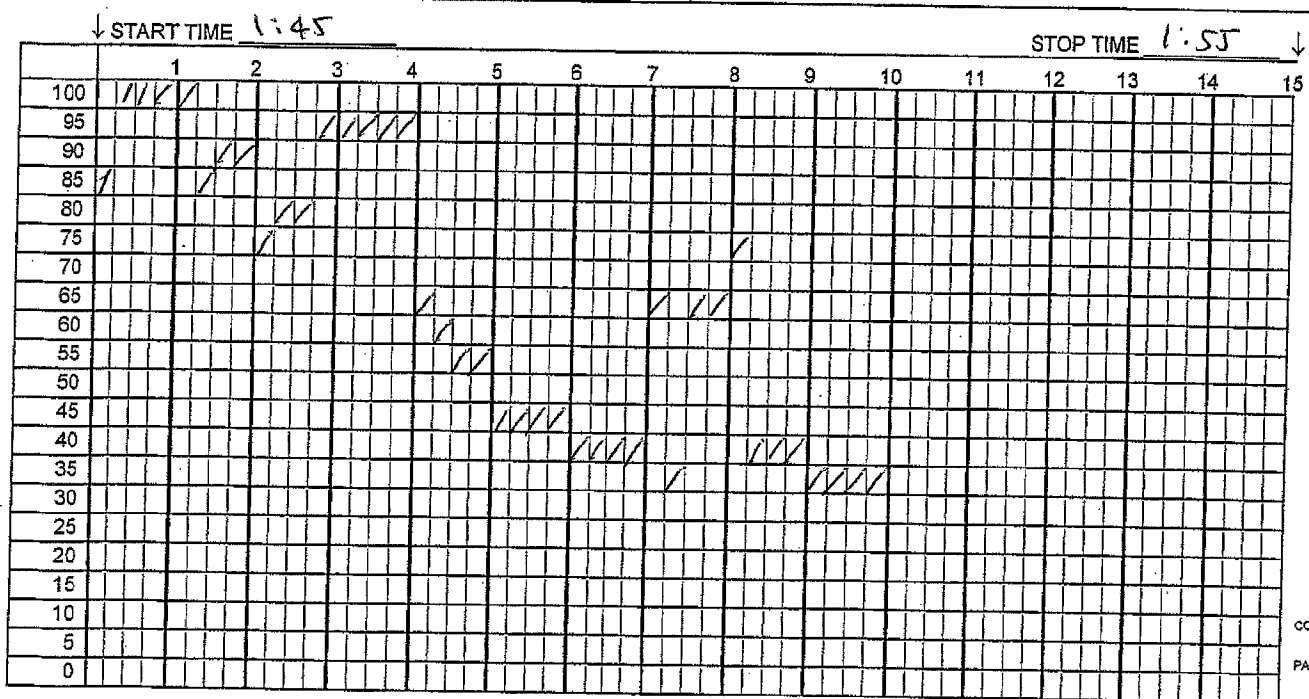 ↓ START TIME 1:45 STOP TIME 1:55 ↓
1 2 3 4 5 6 7 8 9 10 11 12 13 14 15
100
95
90
85
80
75
70
65
60
55
50
45
40
35
30
25
20
15
10
5
0